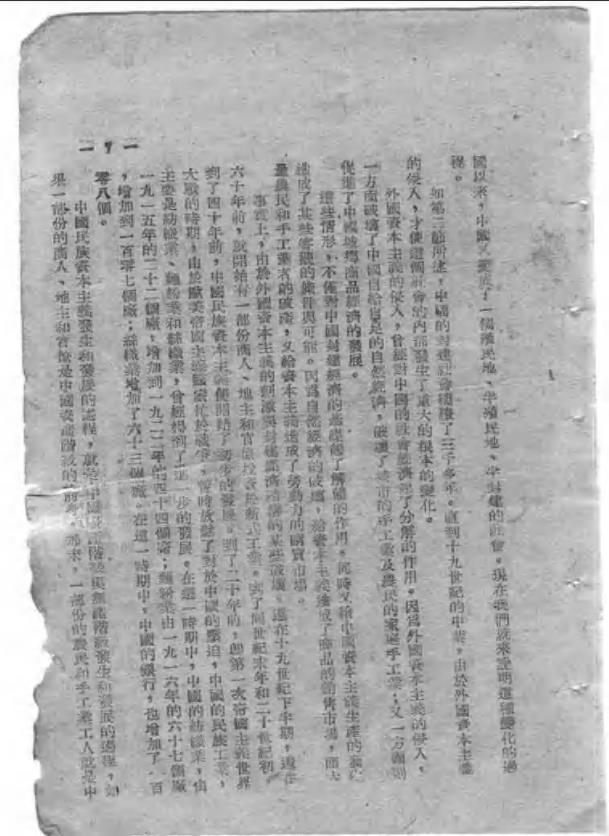 國以來，中國 變成了一個殖民地、半殖民地、半封建的社會。現在我們就來說明這種變化的過
程。
如第三節所述，中國的封建社會繼續了三千多年。直到十九世紀的中葉，由於外國資本主義
的侵入，才使這個社會的內部發生了重大的根本的變化。
外國資本主義的侵入，曾經對中國的社會經濟起了分解的作用。因為外國資本主義的侵入，
一方面破壞了中國自給自足的自然經濟，破壞了城市的手工業及農民的家庭手工業；又一方面則
促進了中國城鄉商品經濟的發展。
這些情形，不僅對中國封建經濟的基礎起了解體的作用，同時又給中國資本主義生產的發展
造成了某些客觀的條件與可能。因為自然經濟的破壞，給資本主義造成了商品的銷售市場，而大
量農民和手工業者的破產，又給資本主義造成了勞動力的購買市場。
事實上，由於外國資本主義的刺激與封建經濟結構的某些破壞，還在十九世紀下半期，還在
六十年前，就開始有一部份商人、地主和官僚投資於新式工業。到了同世紀末年和二十世紀初，
到了四十年前，中國民族資本主義便開始了初步的發展。到了二十年前，即第一次帝國主義世界
大戰的時期，由於歐美帝國主義國家忙於戰爭，暫時放鬆了對於中國的壓迫，中國的民族工業，
主要是紡織業、麵粉業和絲織業，曾經得到了進一步的發展。在這一時期中，中國的紡織業，由
一九一五年的二十二個廠，增加到一九二二年的四十四個廠；麵粉業由一九一六年的六十七個廠
，增加到一百零七個廠；絲織業增加了六十三個廠。在這一時期中，中國的銀行，也增加了一百
零八個。
中國民族資本主義發生和發展的過程，就是中國資產階級與無產階級發生和發展的過程，如
果一部份的商人、地主和官僚是中國資產階級的前身，那末，一部份的農民和手工業工人就是中
— 7 —